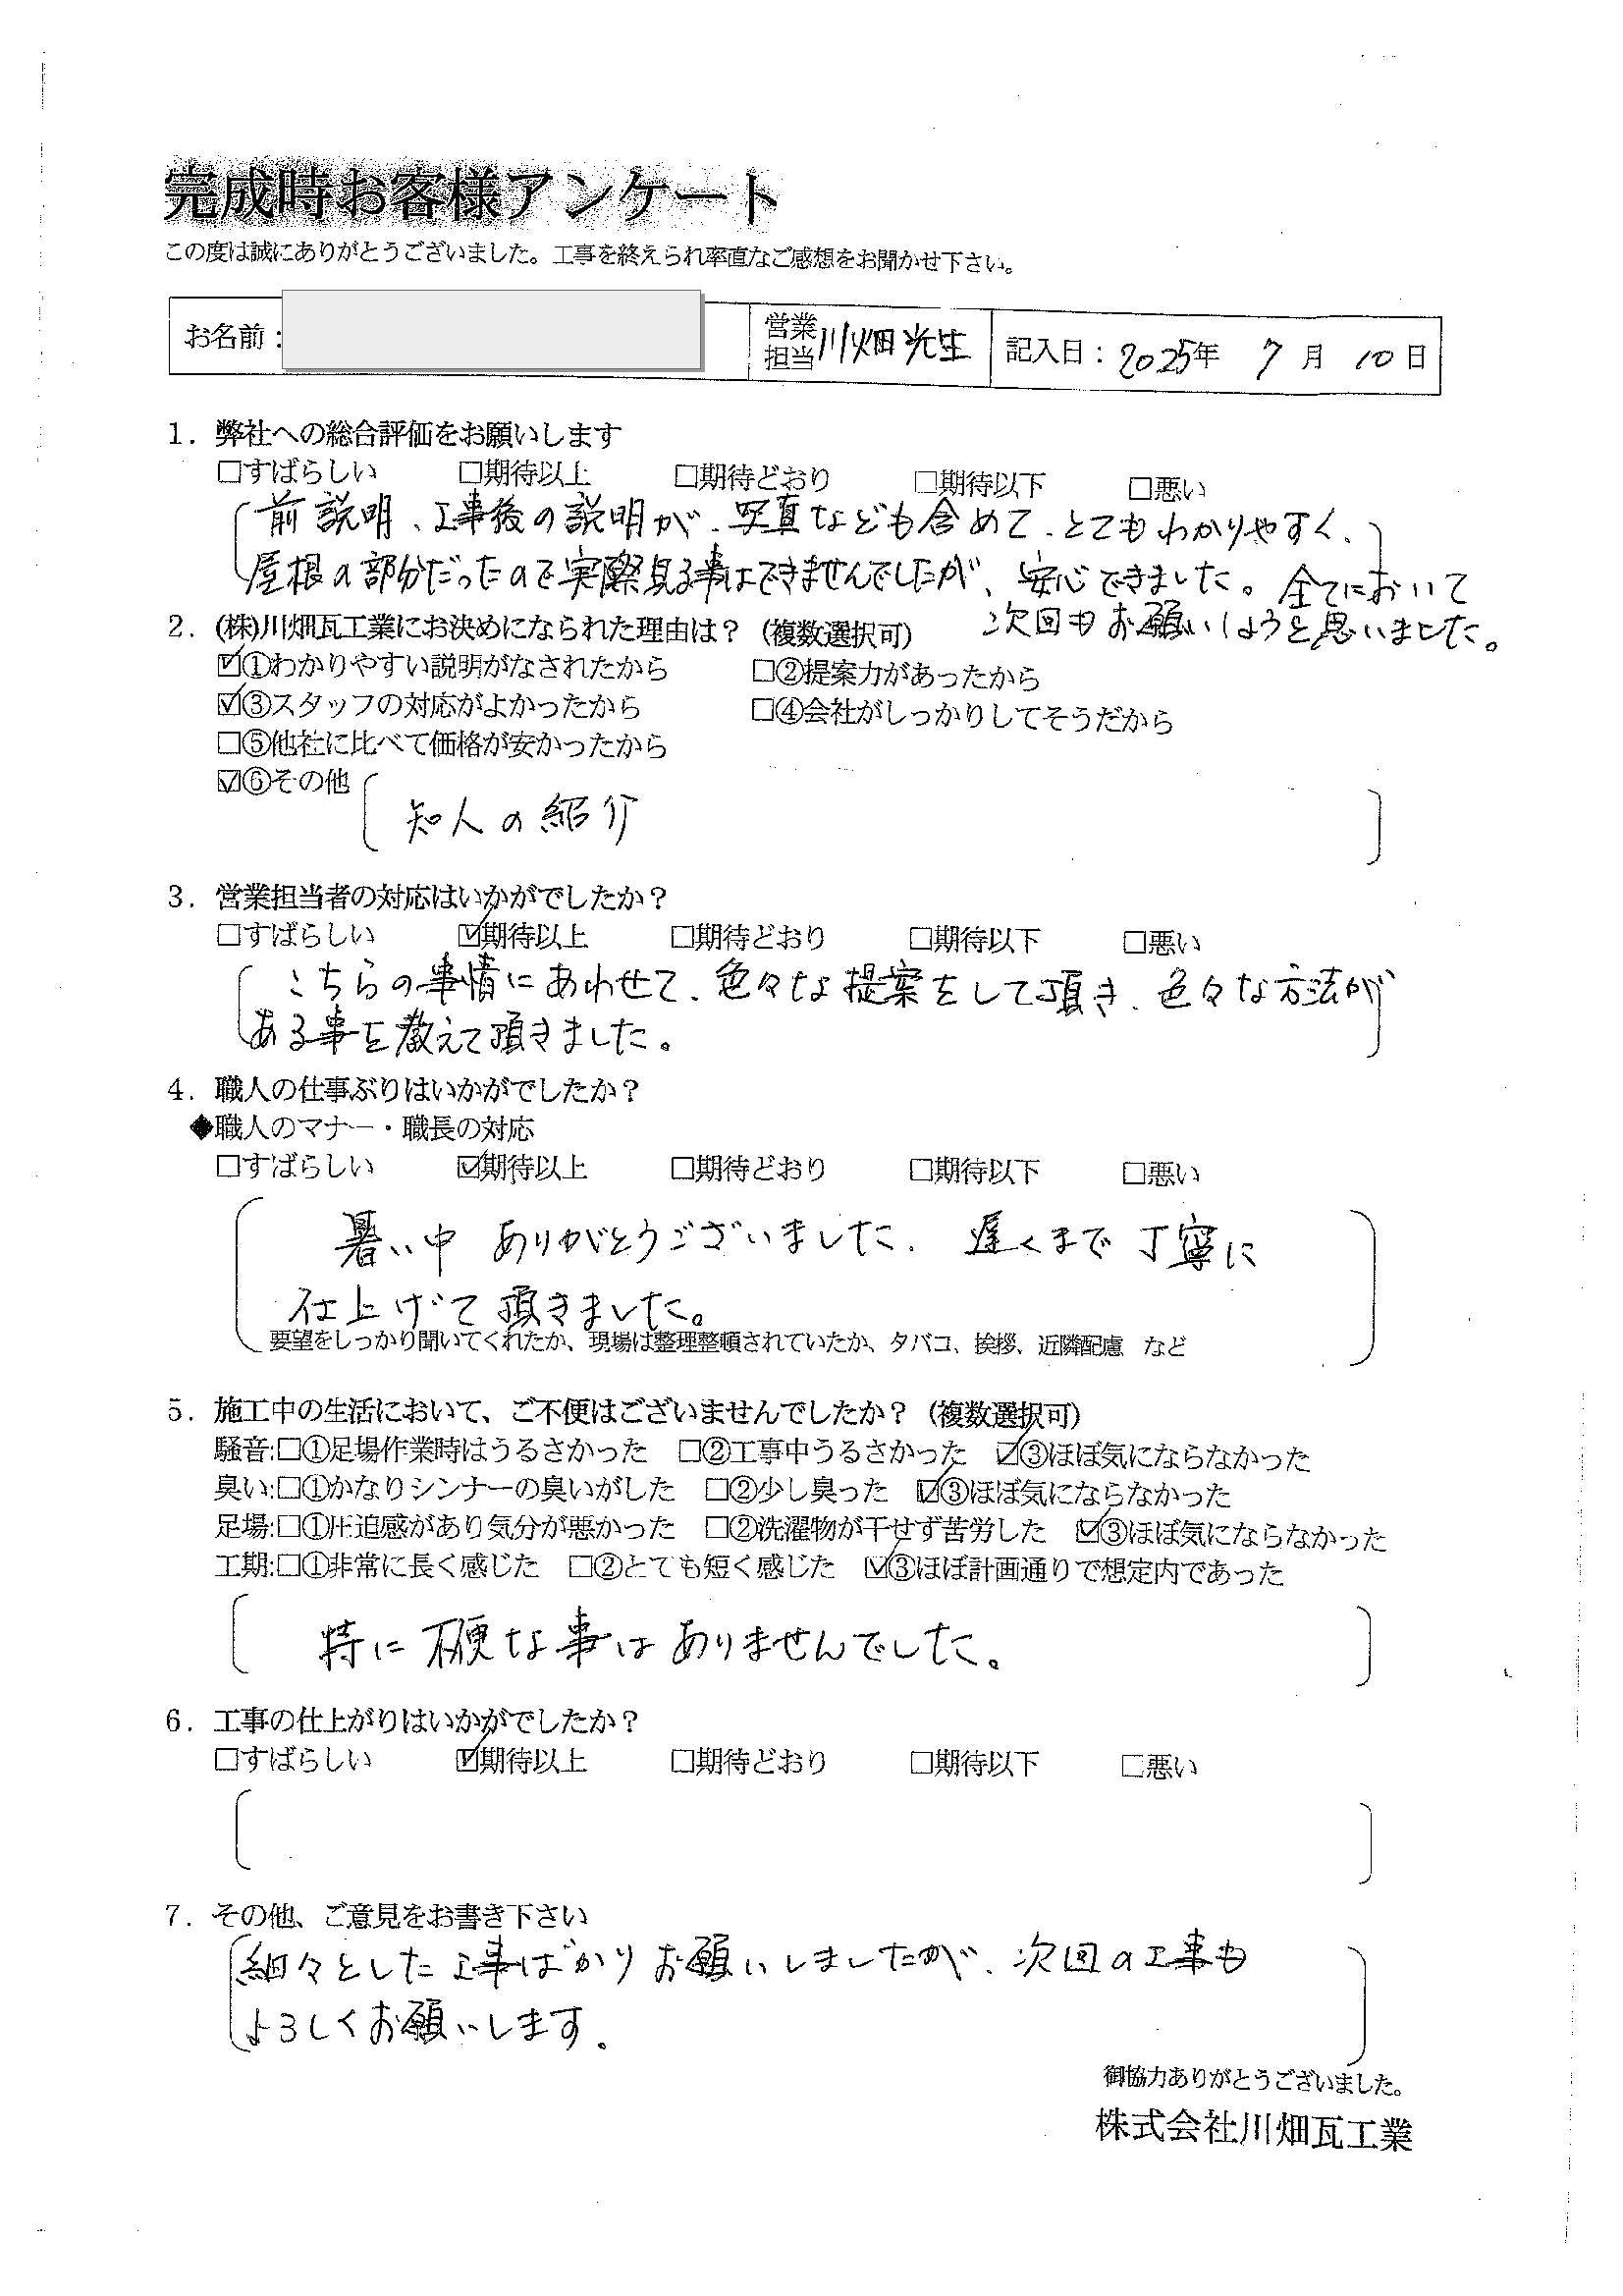 完成時お客様アンケート
この度は誠にありがとうございました。工事を終えられ率直なご感想をお聞かせ下さい。
お名前： 営業担当 川畑光生 記入日：2025年 7月 10日
1．弊社への総合評価をお願いします
□すばらしい □期待以上 □期待どおり □期待以下 □悪い
前説明、工事後の説明が、写真なども含めて、とてもわかりやすく、
屋根の部分だったので実際見る事はできませんでしたが、安心できました。全てにおいて
次回もお願いしようと思いました。
2．(株)川畑瓦工業にお決めになられた理由は？（複数選択可）
☑①わかりやすい説明がなされたから □②提案力があったから
☑③スタッフの対応がよかったから □④会社がしっかりしてそうだから
□⑤他社に比べて価格が安かったから
☑⑥その他
知人の紹介
3．営業担当者の対応はいかがでしたか？
□すばらしい ☑期待以上 □期待どおり □期待以下 □悪い
こちらの事情にあわせて、色々な提案をして頂き、色々な方法が
ある事を教えて頂きました。
4．職人の仕事ぶりはいかがでしたか？
◆職人のマナー・職長の対応
□すばらしい ☑期待以上 □期待どおり □期待以下 □悪い
暑い中 ありがとうございました。 遅くまで 丁寧に
仕上げて頂きました。
要望をしっかり聞いてくれたか、現場は整理整頓されていたか、タバコ、挨拶、近隣配慮 など
5．施工中の生活において、ご不便はございませんでしたか？（複数選択可）
騒音:□①足場作業時はうるさかった □②工事中うるさかった ☑③ほぼ気にならなかった
臭い:□①かなりシンナーの臭いがした □②少し臭った ☑③ほぼ気にならなかった
足場:□①圧迫感があり気分が悪かった □②洗濯物が干せず苦労した ☑③ほぼ気にならなかった
工期:□①非常に長く感じた □②とても短く感じた ☑③ほぼ計画通りで想定内であった
特に不便な事はありませんでした。
6．工事の仕上がりはいかがでしたか？
□すばらしい ☑期待以上 □期待どおり □期待以下 □悪い
7．その他、ご意見をお書き下さい
細々とした工事ばかりお願いしましたが、次回の工事も
よろしくお願いします。
御協力ありがとうございました。
株式会社川畑瓦工業